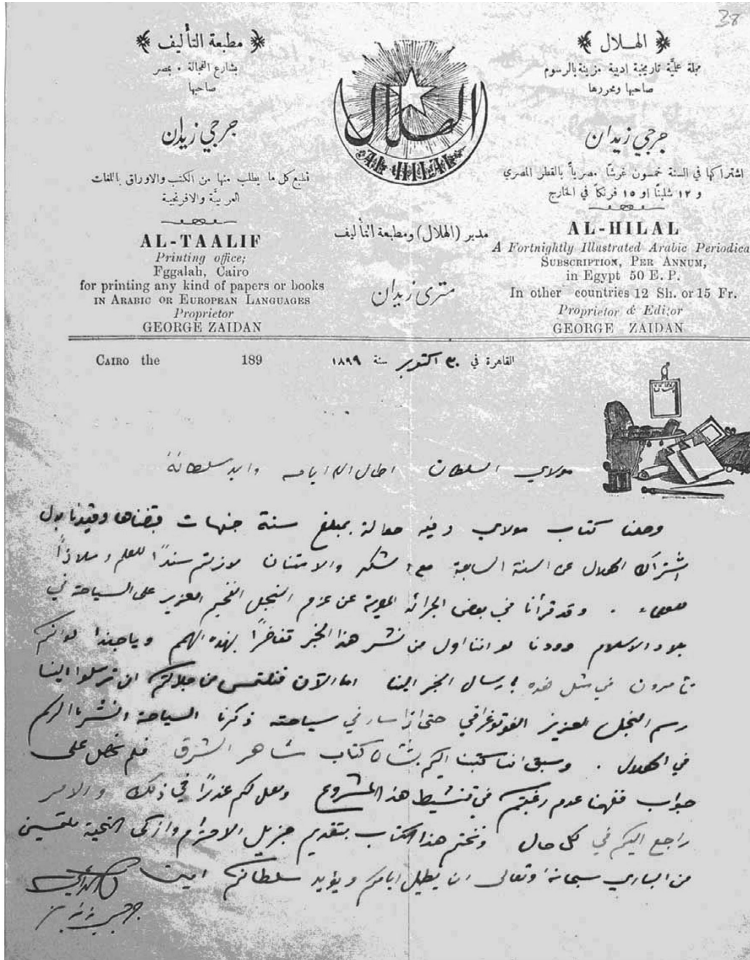 38
الهلال
مجلة علمية تاريخية ادبية مزينة بالرسوم
صاحبها ومحررها
جرجي زيدان
اشتراكها في السنة خمسون غرشًا مصريًا بالقطر المصري
و ١٢ شلنًا او ١٥ فرنكًا في الخارج
AL-HILAL
A Fortnightly Illustrated Arabic Periodical
SUBSCRIPTION, PER ANNUM,
in Egypt 50 E. P.
In other countries 12 Sh. or 15 Fr.
Proprietor & Editor
GEORGE ZAIDAN
الهلال
مدير (الهلال) ومطبعة التأليف
متري زيدان
مطبعة التأليف
بشارع الفجالة بمصر
صاحبها
جرجي زيدان
تطبع كل ما يطلب منها من الكتب والاوراق باللغات
العربية والافرنجية
AL-TAALIF
Printing office;
Fggalah, Cairo
for printing any kind of papers or books
IN ARABIC OR EUROPEAN LANGUAGES
Proprietor
GEORGE ZAIDAN
CAIRO the 189
القاهرة في ٣٠ اكتوبر سنة ١٨٩٩
مولاي السلطان اطال الله ايامه وايد سلطانه
وصلنا كتاب مولاي وفيه حوالة بمبلغ ستة جنيهات قبضناها وقيدناها بدل
اشتراك الهلال عن السنة السابعة مع الشكر والامتنان لازلتم سندًا للعلم وملاذًا
للعلماء . وقد قرأنا في بعض الجرائد عن عزم النجل الفخيم العزيز على السياحة في
بلاد الاسلام وودنا لو اننا اول من نشر هذا الخبر تفاخرًا بهذه الهمم وياحبذا لو انكم
تأمرون في مثل هذه بارسال الخبر الينا اما الآن فنلتمس من جلالتكم ان ترسلوا الينا
رسم النجل العزيز الفوتوغرافي حتى اذا سار في سياحته ذكرنا السياحة ونشرنا الرسم
في الهلال . وسبق اننا كتبنا اليكم بشأن كتاب مشاهير الشرق فلم نحصل على
جواب ففهمنا عدم رغبتكم في تنشيط هذا المشروع ولعل لكم عذرًا في ذلك والامر
راجع اليكم في كل حال ونختم هذا الكتاب بتقديم جزيل الاحترام وازكى التحية ملتمسين
من الباري سبحانه وتعالى ان يطيل ايامكم ويؤيد سلطانكم امين
جرجي زيدان